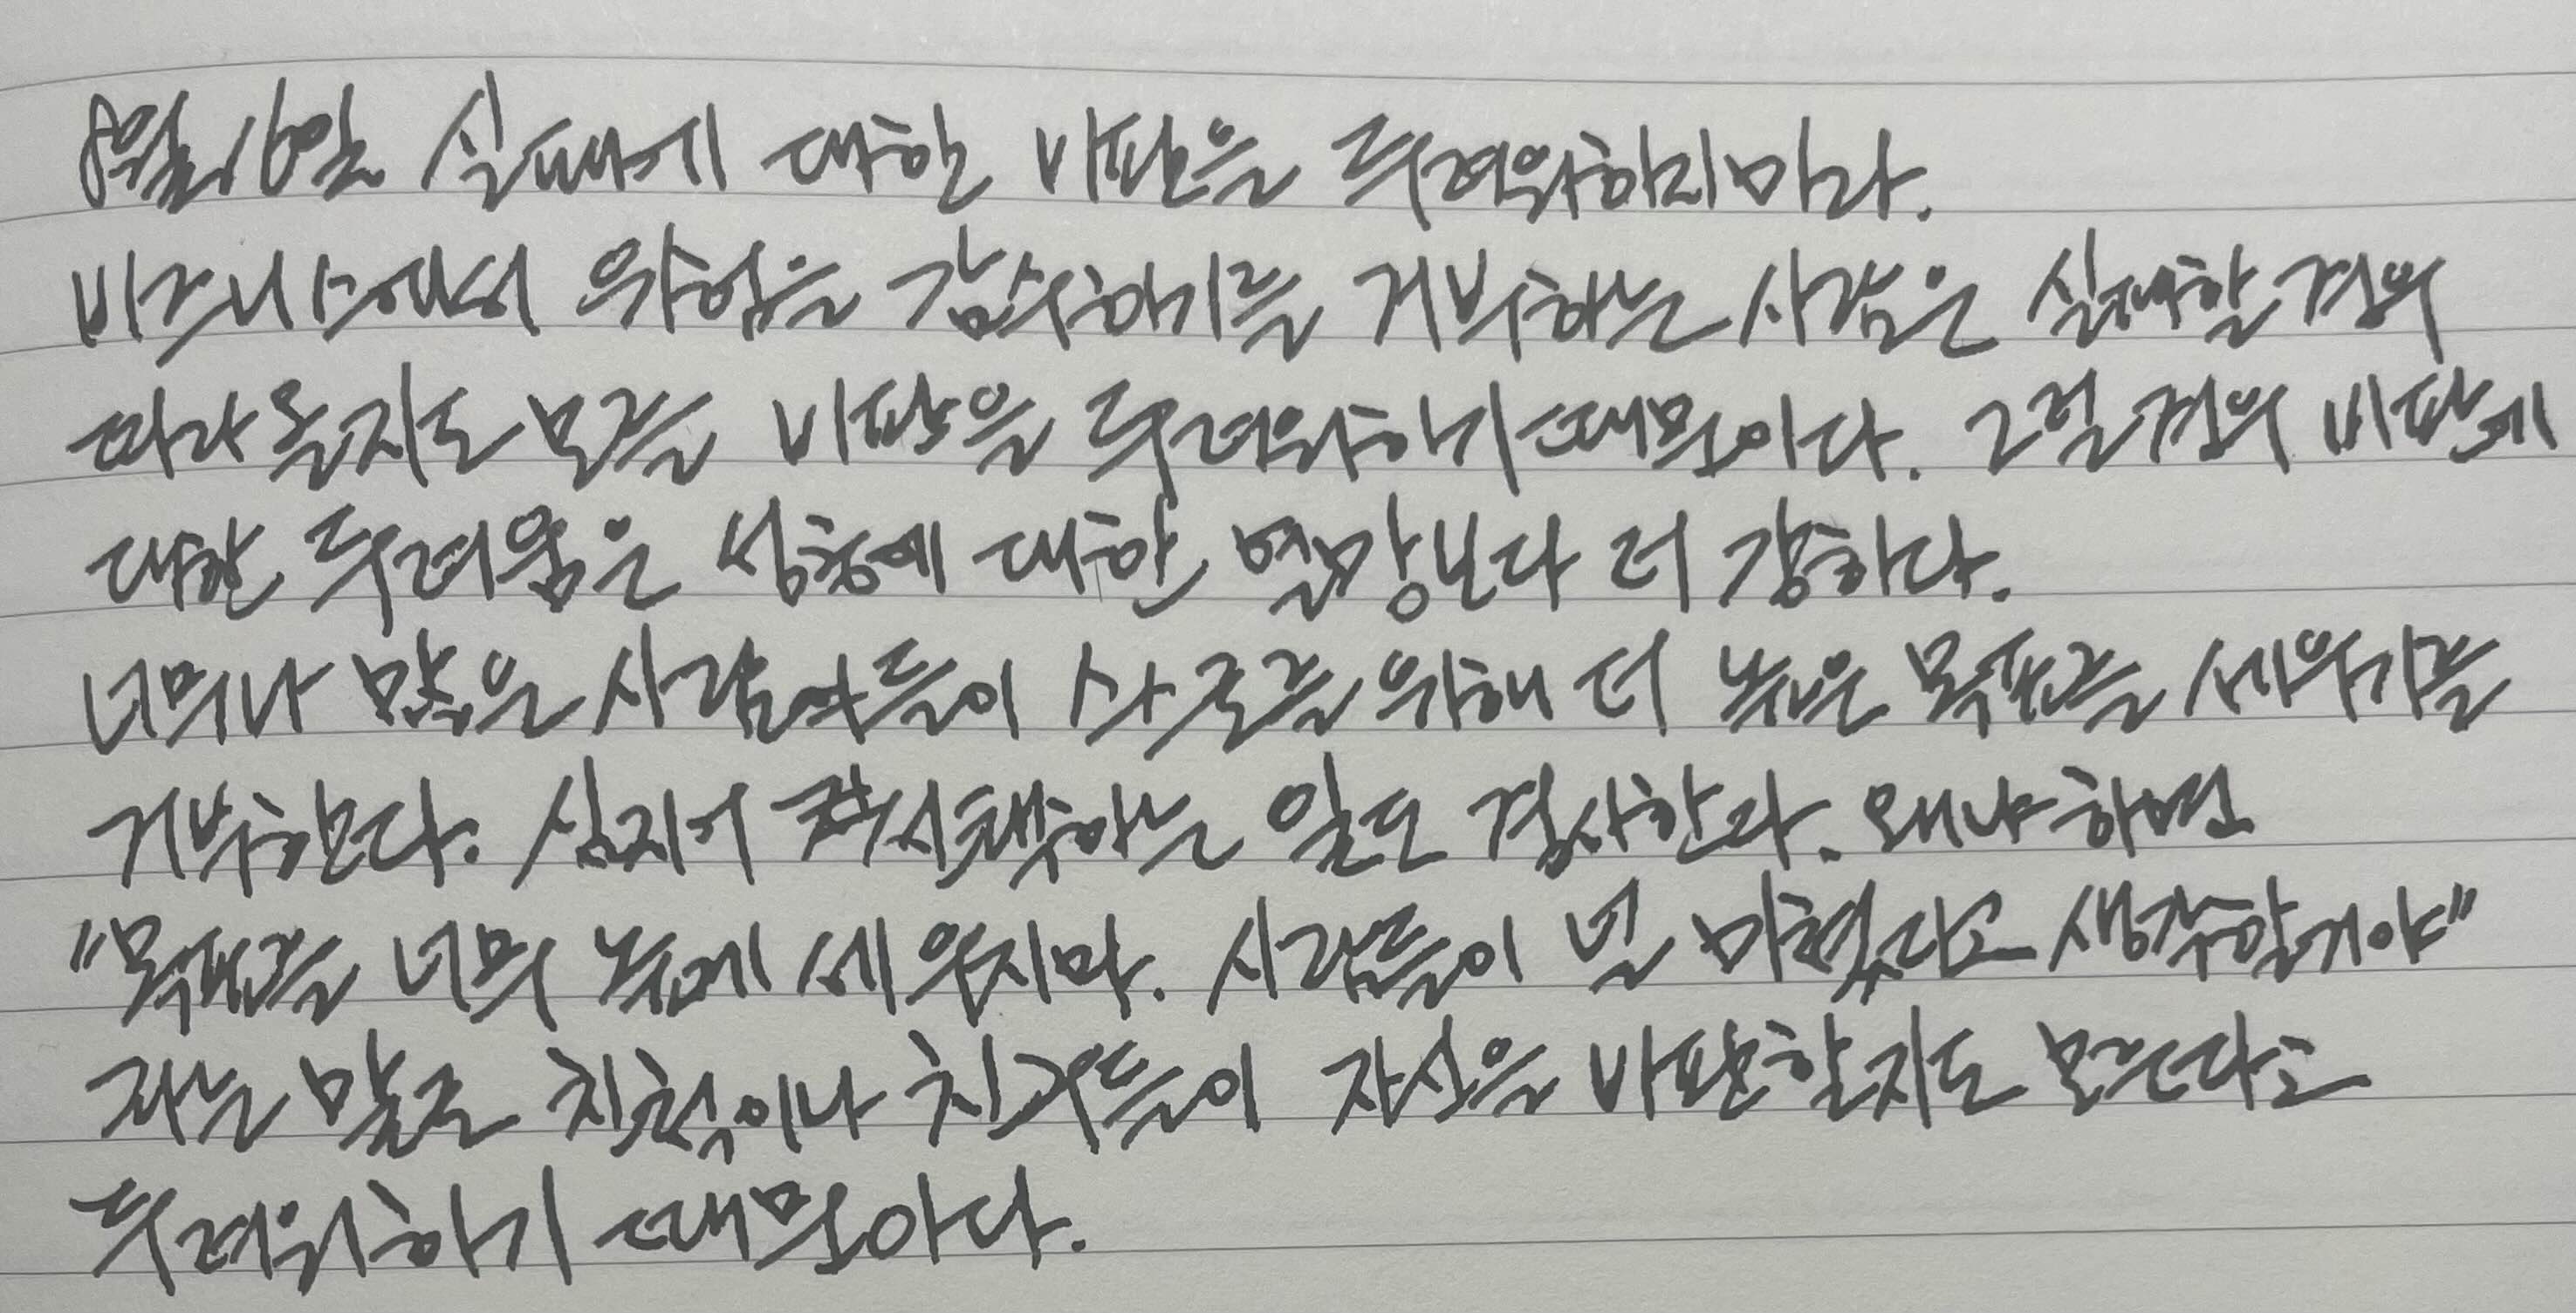 8월16일 실패에 대한 비판을 두려워하지마라.
비즈니스에서 위험을 감수하기를 거부하는 사람은 실패할경우
따라올지도 모를 비판을 두려워하기 때문이다. 그럴경우 비판에
대한 두려움은 성공에 대한 열망보다 더 강하다.
너무나 많은 사람들이 스스로를 위해 더 높은 목표를 세우기를
거부한다. 심지어 하는 일도 한다. 왜냐하면
"목표를 너무 높게 세우지마. 사람들이 널 미쳤다고 생각할거야"
라는 말로 친척이나 친구들이 자신을 비판할지도 모른다고
두려워하기 때문이다.